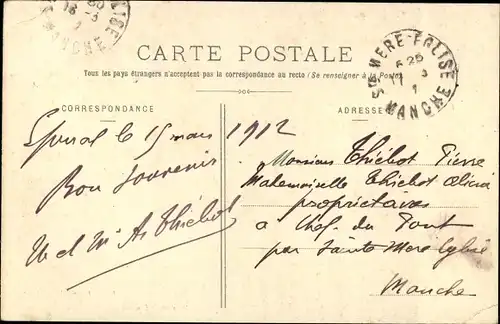 CARTE POSTALE
Tous les pays étrangers n'acceptent pas la correspondance au recto (Se renseigner à la Poste)
CORRESPONDANCE
ADRESSE
Ste MERE-EGLISE
6 25
MANCHE
MANCHE
Epinal le 15 mars 1912
Bon Souvenir
Thiébot
Monsieur Thiébot Pierre
Mademoiselle Thiébot Alicia
propriétaires
a Chef. du Pont
par Sainte Mere Eglise
Manche